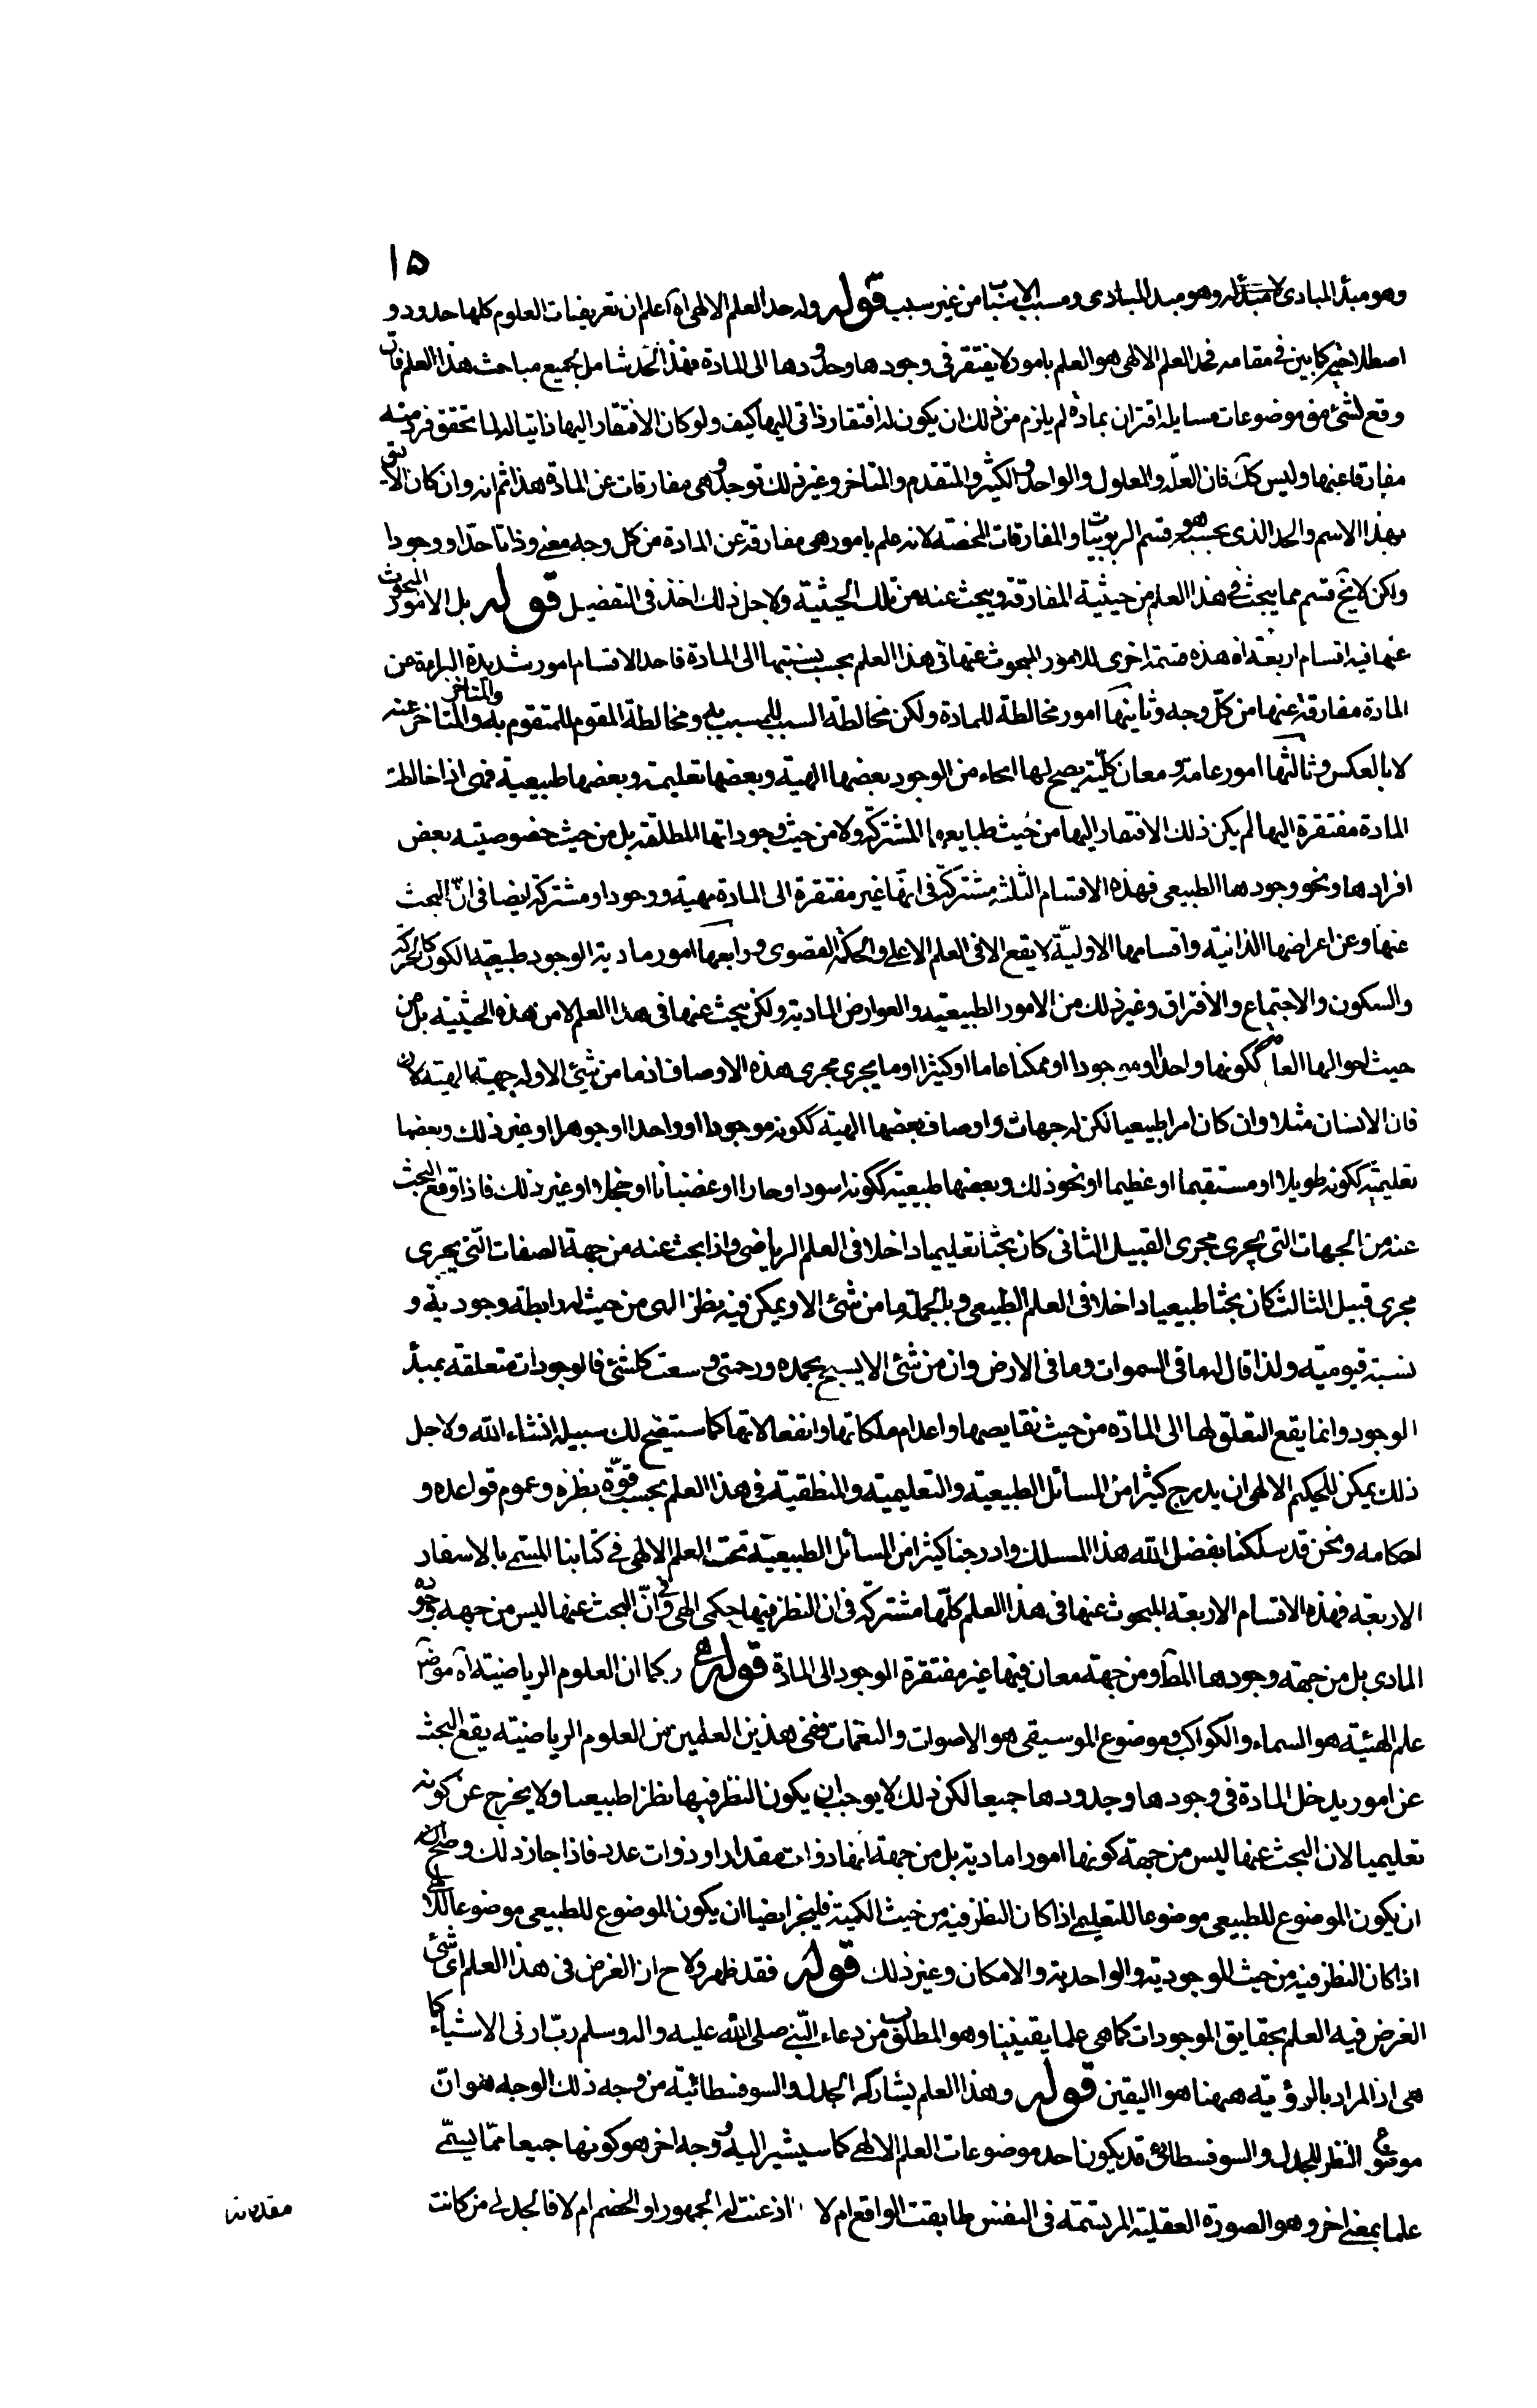 ١٥
وهو مبدأ المبادى لا مبدأ له وهو مبدء المبادى ومسبب الاسباب من غير سبب قوله وله حد العلم الالهى اه اعلم ان تعريفات العلوم كلها حدود و
اصطلاحية كما بين فى مقامه فحد العلم الالهى هو العلم بامور لا يفتقر فى وجودها وحدودها الى المادة فهذا الحد شامل لجميع مباحث هذا العلم فان
وقع لشئ من موضوعات مسايله اقتران بمادة لم يلزم من ذلك ان يكون له افتقار ذاتى اليها كيف ولو كان الافتقار اليها ذاتيا له لما تحقق فرد منه
مفارقا عنها وليس كك فان العلة والمعلول والواحد والكثير والمتقدم والمتاخر وغير ذلك توجد وهى مفارقات عن المادة هذا ثم انه وان كان الاليق
بهذا الاسم والحد الذى بحسبه هو قسم الربوبيات والمفارقات المحضة لانه علم بامور هى مفارقة عن المادة من كل وجه معنى وذاتا حدا ووجودا
ولكن لا يخ قسم مما يبحث فى هذا العلم من حيثية المفارقة ويبحث عنه من تلك الحيثية ولاجل ذلك اخذ فى التفصيل قوله بل الامور المبحوث
عنها فيه اقسام اربعة اه هذه قسمة اخرى للامور المبحوث عنها فى هذا العلم بحسب نسبتها الى المادة فاحد الاقسام امور شديدة البراءة عن
المادة مفارقة عنها من كل وجه وثانيها امور مخالطة للمادة ولكن مخالطة السبب للمسبب به ومخالطة المقوم للمتقوم به والمتاخر عنه
لا بالعكس وثالثها امور عامة ومعان كلية يصح لها انحاء من الوجود بعضها الهية وبعضها تعليمية وبعضها طبيعية فهى اذا خالطت
المادة مفتقرة اليها لم يكن ذلك الافتقار اليها من حيث طبايعها المشتركة ولا من حيث وجوداتها المطلقة بل من حيث خصوصيته بعض
افرادها ونحو وجودها الطبيعى فهذه الاقسام الثلثة مشتركة فى انها غير مفتقرة الى المادة مهية ووجودا ومشتركة ايضا فى ان البحث
عنها وعن اعراضها الذاتية واقسامها الاولية لا يقع الا فى العلم الاعلى والحكمة القصوى ورابعها امور مادية الوجود طبيعية الكون كالحركة
والسكون والاجتماع والافتراق وغير ذلك من الامور الطبيعية والعوارض المادية ولكن يبحث عنها فى هذا العلم لا من هذه الحيثية بل من
حيث احوالها العامة ككونها واحدا او موجودا او ممكنا عاما او كثيرا او ما يجرى مجرى هذه الاوصاف اذ ما من شئ الا وله جهة الهية
فان الانسان مثلا وان كان امرا طبيعيا لكن له جهات واوصاف بعضها الهية ككونه موجودا او واحدا او جوهرا او غير ذلك وبعضها
تعليمية ككونه طويلا او مستقيما او عظيما او نحو ذلك وبعضها طبيعية ككونه اسود او حارا او غضبانا او خجلا او غير ذلك فاذا وقع البحث
عنه من الجهات التى يجرى مجرى القبيل الثانى كان بحثا تعليميا داخلا فى العلم الرياضى واذا بحث عنه من جهة الصفات التى يجرى
مجرى قبيل الثالث كان بحثا طبيعيا داخلا فى العلم الطبيعى وبالجملة ما من شئ الا ويمكن فيه نظر الهى من حيث له رابطة وجودية و
نسبة قيومية ولذا قال له ما فى السموات وما فى الارض وان من شئ الا يسبح بحمده ورحمتى وسعت كلشئ فالوجودات متعلقة بمبدأ
الوجود وانما يقع التعلق لها الى المادة من حيث نقايصها واعدام ملكاتها وانفعالاتها كما ستيضح لك سبيله انشاء الله ولاجل
ذلك يمكن للحكيم الالهى ان يدرج كثيرا من المسائل الطبيعية والتعليمية والمنطقية فى هذا العلم بحسب قوة نظره وعموم قواعده و
احكامه ونحن قد سلكنا بفضل الله هذا المسلك وادرجنا كثيرا من المسائل الطبيعية تحت العلم الالهى فى كتابنا المسمى بالاسفار
الاربعة فهذه الاقسام الاربعة المبحوث عنها فى هذا العلم كلها مشتركة فى ان النظر فيها حكمى الهى وفى ان البحث عنها ليس من جهة وجوده
المادى بل من جهة وجودها المط ومن جهة معان فيها غير مفتقرة الوجود الى المادة قوله ره وكما ان العلوم الرياضية اه موضوع
علم الهيئة هو السماء والكواكب وموضوع الموسيقى هو الاصوات والنغمات ففى هذين العلمين من العلوم الرياضية يقع البحث
عن امور يدخل المادة فى وجودها وحدودها جميعا لكن ذلك لا يوجب ان يكون النظر فيها نظرا طبيعيا ولا يخرج عن كونه
تعليميا لان البحث عنها ليس من جهة كونها امورا مادية بل من جهة انها ذوات مقدار او ذوات عدد فاذا جاز ذلك وصح
ان يكون الموضوع للطبيعى موضوعا للتعليمى اذا كان النظر فيه من حيث الكمية فليجز ايضا ان يكون الموضوع للطبيعى موضوعا للالهى
اذا كان النظر فيه من حيث الوجودية والواحدية والامكان وغير ذلك قوله فقد ظهر ولاح ان الغرض فى هذا العلم اى شئ
الغرض فيه العلم بحقايق الموجودات كما هى علما يقينيا وهو المطلوب من دعاء النبى صلى الله عليه واله وسلم رب ارنى الاشياء كما
هى اذ المراد بالرؤية ههنا هو اليقين قوله وهذا العلم يشاركه الجدل والسوفسطائية من وجه ذلك الوجه هو ان
موضوع النظر للجدل والسوفسطائى قد يكون احد موضوعات العلم الالهى كما سيشير اليه ووجه اخر هو كونها جميعا مما يسمى
علما بمعنى اخر وهو الصورة العقلية المرتسمة فى النفس طابقت الواقع ام لا اذعنت له الجمهور او الخصم ام لا فالجدلى من كانت
مقدماته